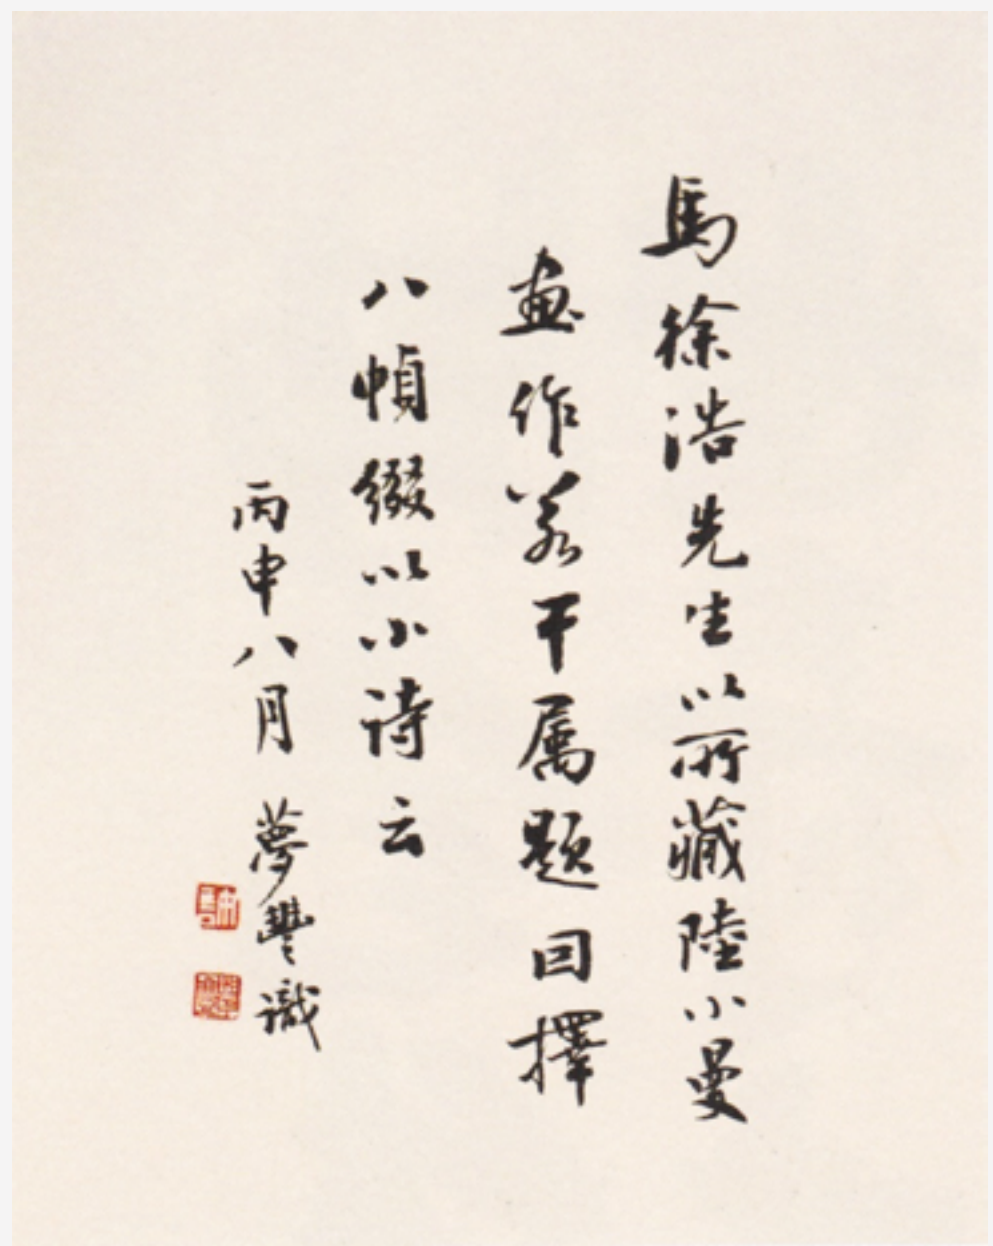 馬徐浩先生以所藏陸小曼
畫作若干属題因擇
八幀綴以小詩云
丙申八月 夢豐識